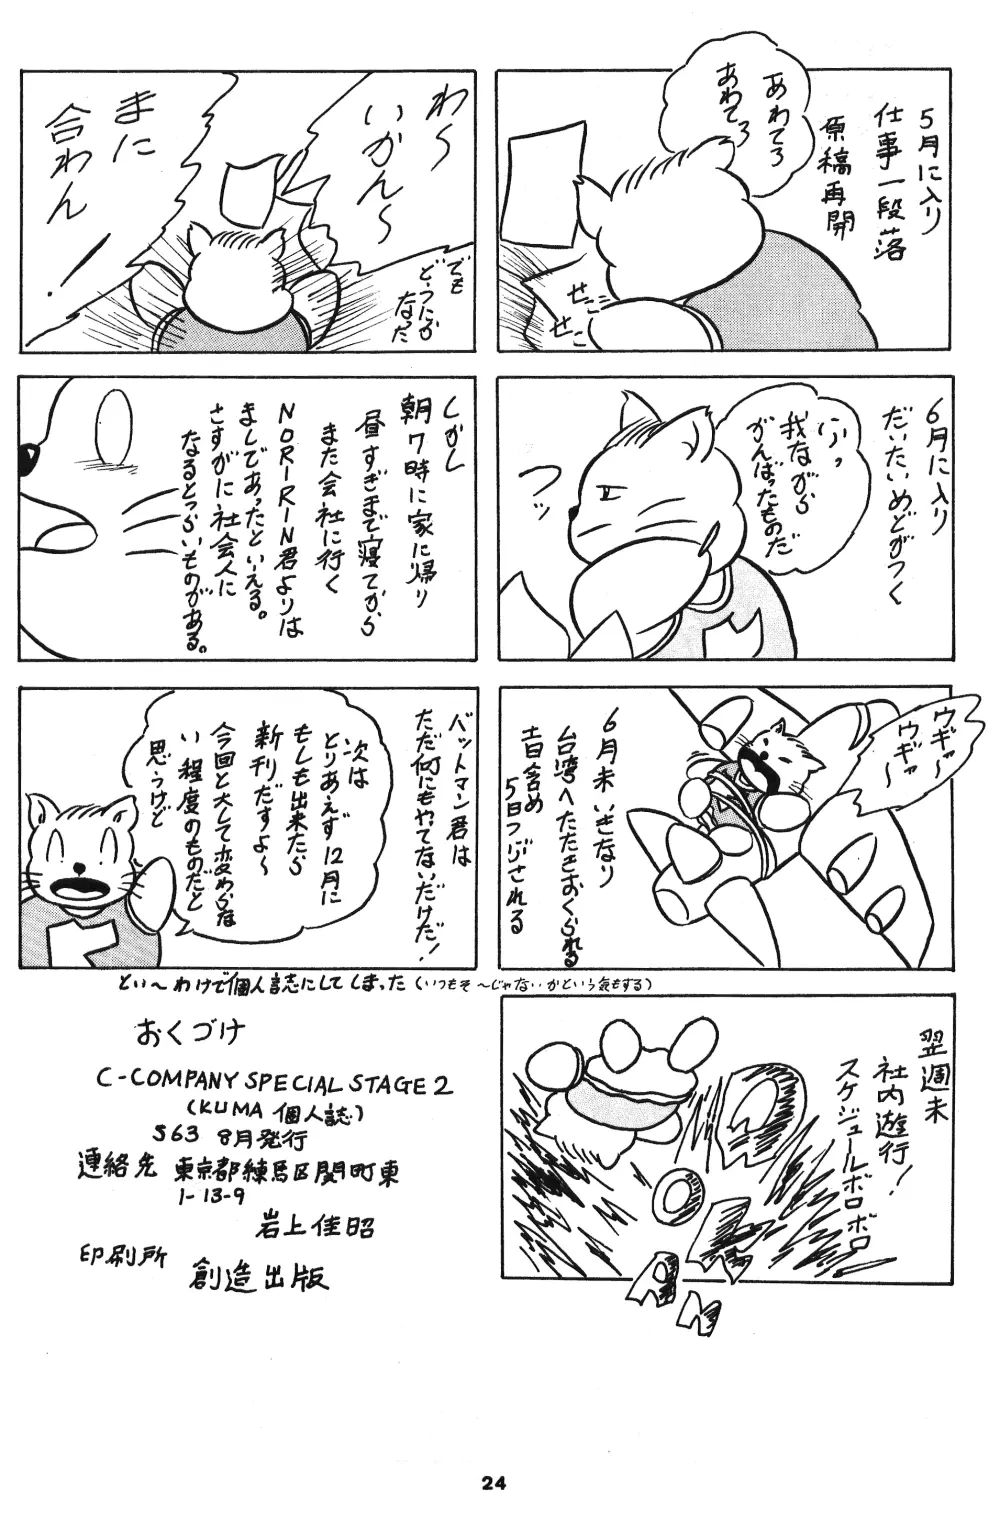 5月に入り
仕事一段落
原稿再開
あわてろ
あわてろ
せこ
せこ
6月に入り
だいたいめどがつく
我ながら
がんばったものだ
フッ
6月末いきなり
台湾へたたきおくられる
土日含め
5日つぶされる
ウギャ〜
ウギャ〜
翌週末
社内遊行!
スケジュールボロボロ
わ〜
いかん〜
まに
合わん!
でも
どーにか
なった
しかし
朝7時に家に帰り
昼すぎまで寝てから
また会社に行く
NORIRIN君よりは
ましであったといえる。
さすがに社会人に
なるとつらいものがある。
バットマン君は
ただ何にもやてないだけだ!
次は
とりあえず12月に
もしも出来たら
新刊だすよ〜
今回と大して変わらな
い程度のものだと
思うけど
とい〜わけで個人誌にしてしまった(いつもそ〜じゃないかという気もする)
おくづけ
C-COMPANY SPECIAL STAGE 2
(KUMA 個人誌)
S63 8月発行
連絡先 東京都練馬区関町東
1-13-9
岩上佳昭
印刷所
創造出版
24